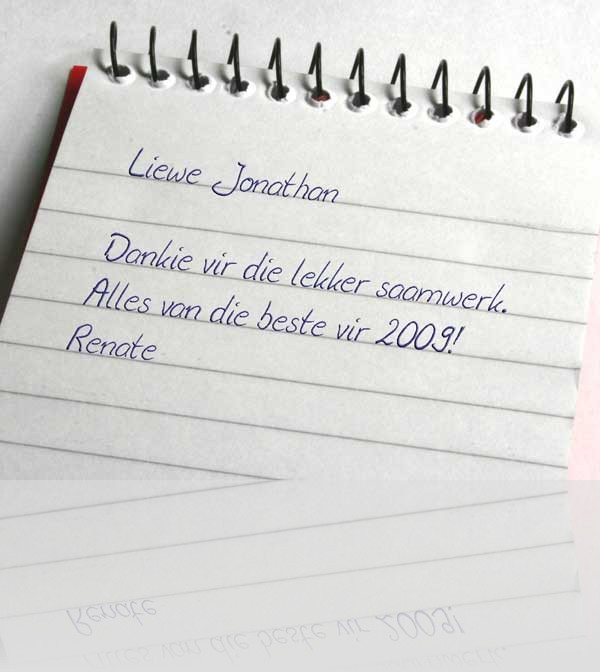 Liewe Jonathan
Dankie vir die lekker saamwerk.
Alles van die beste vir 2009!
Renate